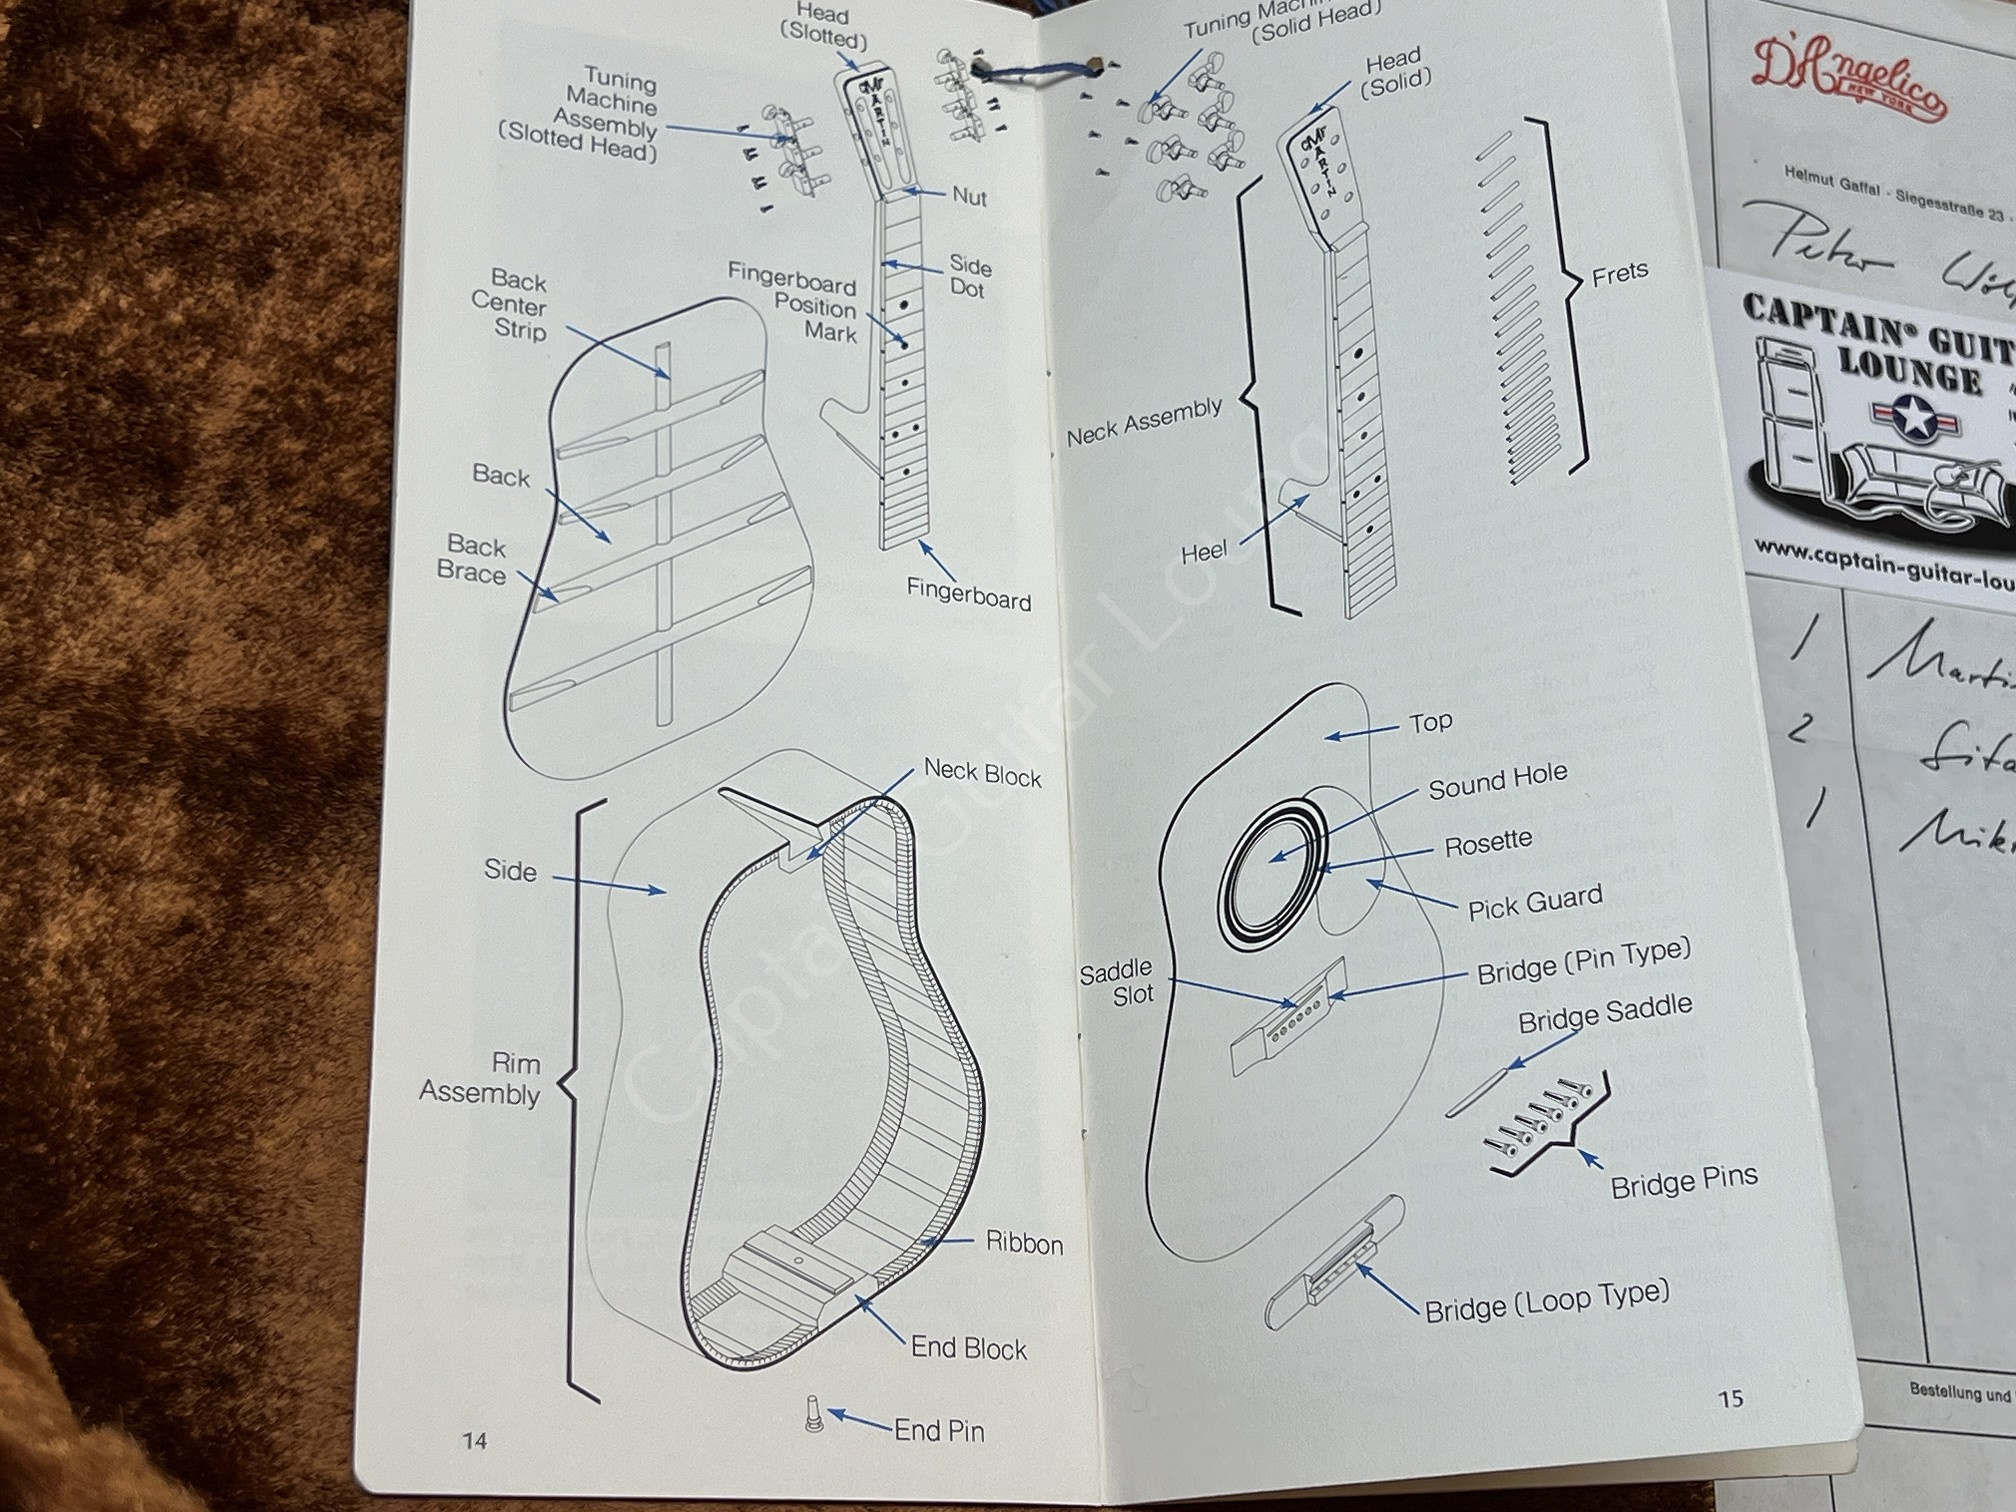 Head
(Slotted)
Tuning
Machine
Assembly
(Slotted Head)
Nut
Side
Dot
Fingerboard
Position
Mark
Back
Center
Strip
Back
Back
Brace
Fingerboard
Neck Block
Side
Rim
Assembly
Ribbon
End Block
End Pin
14
Tuning
(Solid Head)
Head
(Solid)
MARTIN
MARTIN
Frets
Neck Assembly
Heel
Top
Sound Hole
Rosette
Pick Guard
Saddle
Slot
Bridge (Pin Type)
Bridge Saddle
Bridge Pins
Bridge (Loop Type)
15
D'Angelico
NEW YORK
Helmut Gaffal · Siegesstraße 23 ·
Peter
CAPTAIN® GUIT
LOUNGE
www.captain-guitar-lou
1
2
1
Bestellung und
Captain Guitar Lounge